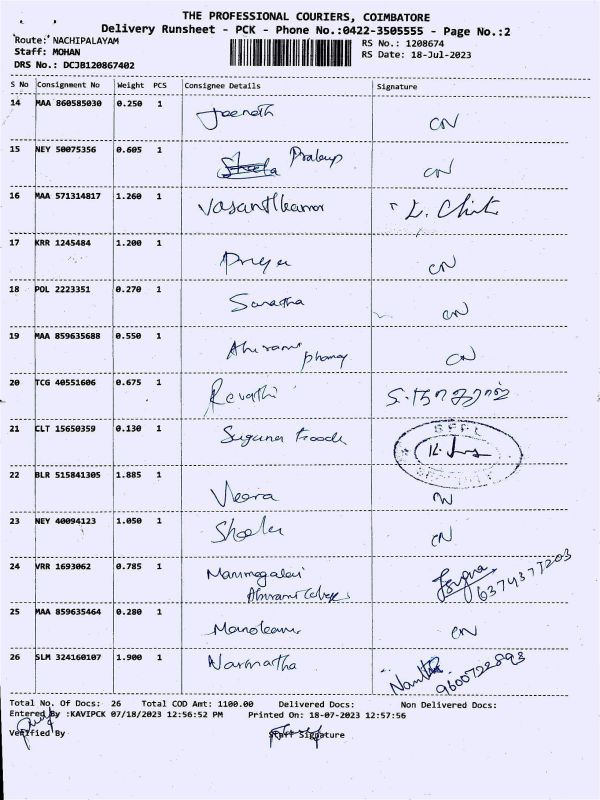 THE PROFESSIONAL COURIERS, COIMBATORE
Delivery Runsheet - PCK - Phone No.:0422-3505555 - Page No.:2
Route: NACHIPALAYAM RS No.: 1208674
Staff: MOHAN RS Date: 18-Jul-2023
DRS No.: DCJB120867402
S No Consignment No Weight PCS Consignee Details Signature
14 MAA 860585030 0.250 1 CN
15 NEY 50075356 0.605 1 Pratap CN
16 MAA 571314817 1.260 1
17 KRR 1245484 1.200 1 Priya CN
18 POL 2223351 0.270 1 CN
19 MAA 859635688 0.550 1 Abirami CN
20 TCG 40551606 0.675 1 Revathi
21 CLT 15650359 0.130 1 Suguna
22 BLR 515841305 1.885 1 Veera
23 NEY 40094123 1.050 1 Sheela CN
24 VRR 1693062 0.785 1 6374377203
Abirami
25 MAA 859635464 0.280 1 CN
26 SLM 324160107 1.900 1 9600722893
Total No. Of Docs: 26 Total COD Amt: 1100.00 Delivered Docs: Non Delivered Docs:
Entered By :KAVIPCK 07/18/2023 12:56:52 PM Printed On: 18-07-2023 12:57:56
Verified By Staff Signature